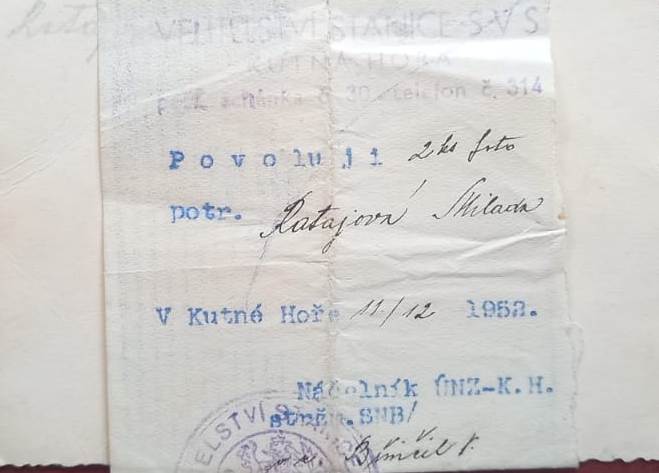 VELITELSTVÍ STANICE S V S
KUTNÁ HORA
pošt. schránka č. 30. telefon č. 314
Povoluji 2 ks foto
potr. Ratajová Milada
V Kutné Hoře 11./12 1952.
Náčelník ÚNZ-K.H.
strážm.SNB/
VELITELSTVÍ